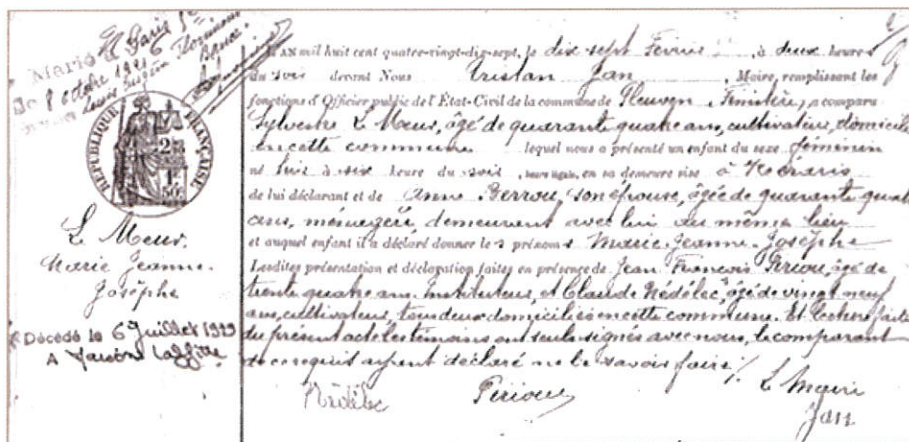 Marié à Paris 5e
le 8 octobre 1921
avec Louis Eugène
L'AN mil huit cent quatre-vingt-dix-sept, le dix sept Février, à deux heures
du soir devant Nous Tristan Jan, Maire, remplissant les
fonctions d'Officier public de l'État-Civil de la commune de Pleuven Finistère, a comparu
Sylvestre Le Meur, âgé de quarante quatre ans, cultivateur, domicilié
en cette commune lequel nous a présenté un enfant du sexe féminin
né hier à six heure du soir, heure légale, en sa demeure sise à
de lui déclarant et de Anne Berrou, son épouse, âgée de quarante quatre
ans, ménagère, demeurant avec lui au même lieu
et auquel enfant il a déclaré donner les prénoms Marie Jeanne Josèphe
Lesdites présentation et déclaration faites en présence de Jean François Périou, âgé de
trente quatre ans, Instituteur, et Claude Nédélec, âgé de vingt neuf
ans, cultivateur, tous deux domiciliés en cette commune. Et lecture faite
du présent acte les témoins ont seuls signés avec nous, le comparant
de ce requis ayant déclaré ne le savoir faire ./.
Nédélec Périou Le Maire
Jan
RÉPUBLIQUE FRANÇAISE
Le Meur
Marie Jeanne
Josèphe
Décédé le 6 Juillet 1929
A Maisons Laffitte